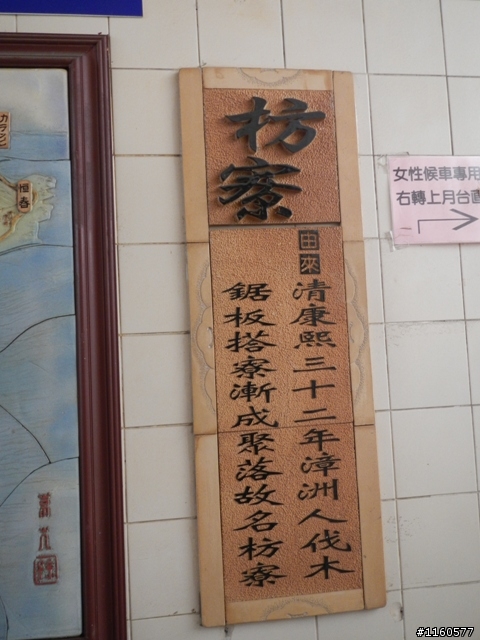 枋寮
由來
清康熙三十二年漳洲人伐木
鋸板搭寮漸成聚落故名枋寮
女性候車專用
右轉上月台
恒春
#1160577